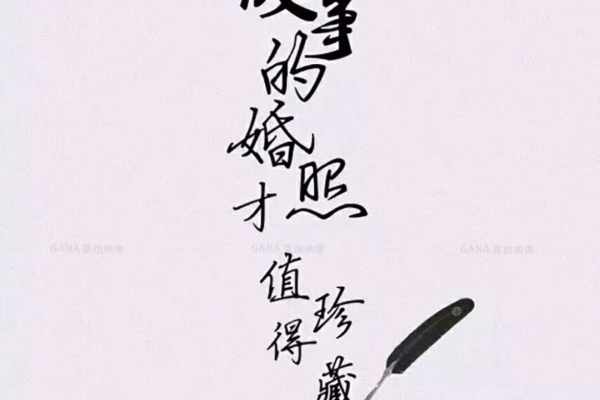 事
的
婚照
才
值得
珍藏
GANA
GANA
GANA